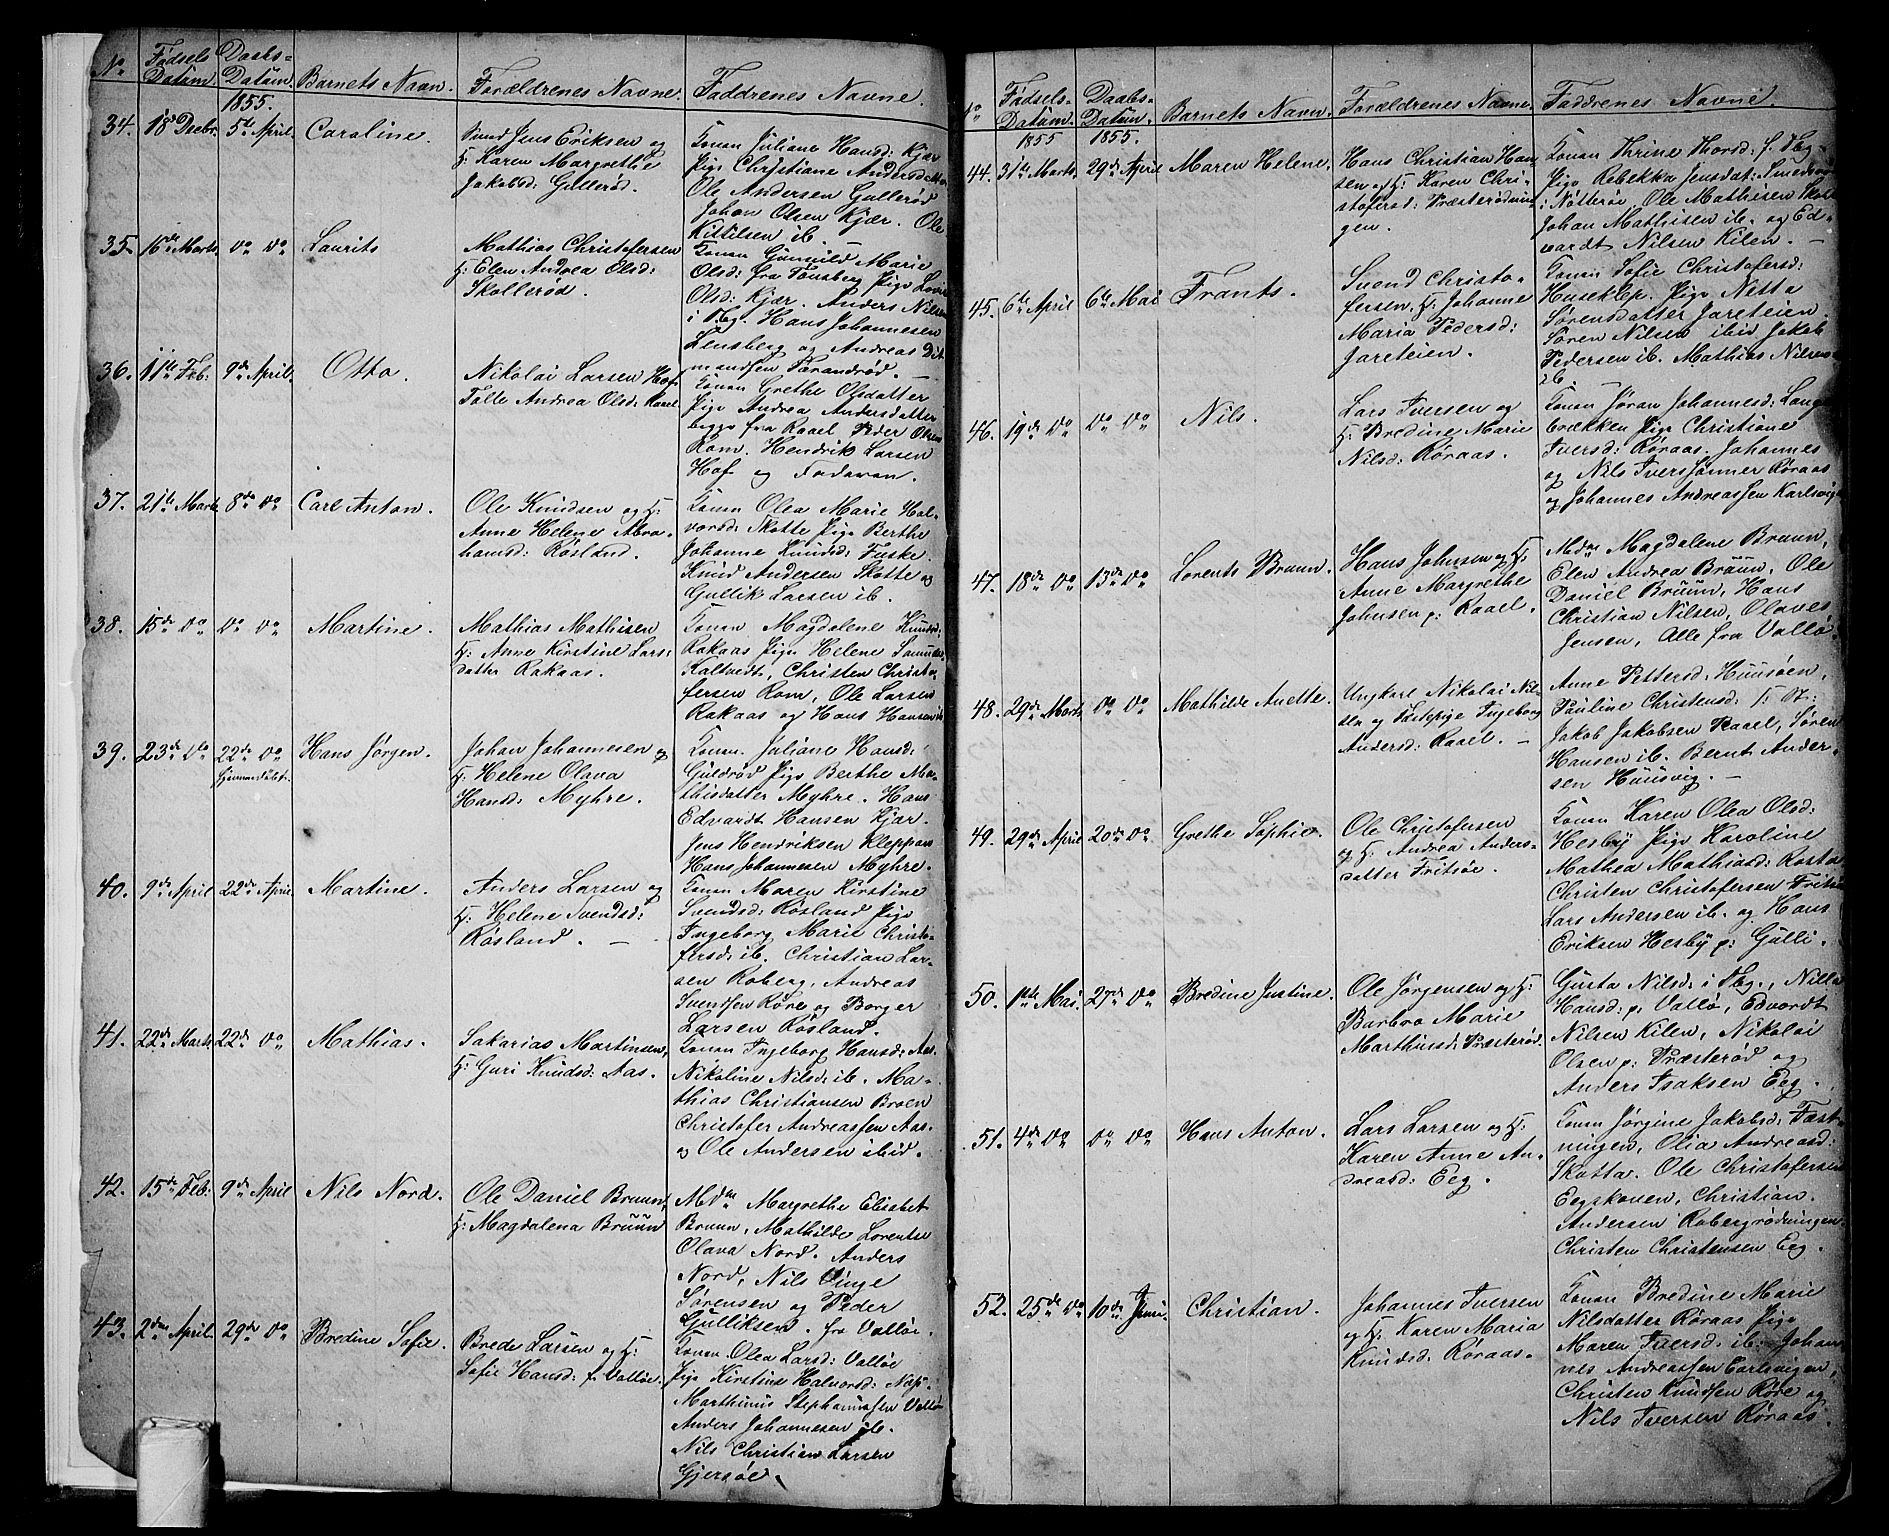 No Fødsels Datum. Daabs-Datum. Barnets Navn. Forældrenes Navne. Faddrenes Navne.
1855.
34. 18de Decbr. 5te April Caroline.
Jens Eriksen og
H: Karen Margrethe
Jakobsd: Gullerød.
Konen Juliane Hansd: Kjær
Pige Christiane Andersd:
Ole Andersen Gullerød
Johan Olsen Kjær. Ole
Kittilsen ib.
35. 16de Marts. do do Laurits
Mathias Christofersen
H: Elen Andrea Olsd:
Skollerød.
Konen Gunnild Marie
Olsd: fra Tønsberg Pige
Olsd: Kjær. Anders Nilsen
i Tbg. Hans Johannesen
Lensberg og Andreas Dit
mandsen Farandrød.
36. 11te Feb: 9de April. Otto.
Nikolai Larsen Hof
Andrea Olsd: Raael
Konen Grethe Olsdatter
Pige Andrea Andersdatter
begge fra Raael Peder Olsen
Rom. Hendrik Larsen
Hof og Faderen.
37. 21te Marts 8de do Carl Anton.
Ole Knudsen og H:
Anne Helene Abra-
hamsd: Røsland.
Konen Olea Marie Hal-
vorsd: Skotte Pige Berthe
Johanne Knudsd: Fuske
Knud Andersen Skotte og
Gullik Larsen ib.
38. 15de do do do Martine.
Mathias Mathisen
H: Anne Kirstine Lars-
datter Rakaas.
Konen Magdalene Knudsd:
Rakaas Pige Helene Samuelsd:
Kaltvedt, Christen Christo-
fersen Rom, Ole Larsen
Rakaas og Hans Hansen ib
39. 23de do 22de do Hans Jørgen.
Hjemmedøbt.
Johan Johannesen og
H: Helene Olava
Hansd: Myhre.
Konen Juliane Hansd:
Guldrød Pige Berthe Ma-
thisdatter Myhre. Hans
Edvardt Hansen Kjær.
Jens Hendriksen Kleppan
Hans Johannesen Myhre.
40. 9de April 22de April Martine.
Anders Larsen og
H: Helene Svendsd:
Røsland.
Konen Maren Kirstine
Svendsd: Røsland Pige
Ingeborg Marie Christo-
fersd: ib. Christian Lar-
sen Roberg, Andreas
Svendsen Røre og Borger
Larsen Røsland.
41. 22de Marts 22de do Mathias.
Sakarias Martinsen,
H: Guri Knudsd: Aas.
Konen Ingeborg Hansd: Aas.
Nikoline Nilsd: ib. Ma-
thias Christiansen Broen
Christofer Andreassen Aas.
og Ole Andersen ibid.
42. 15de Feb: 9de April Nils Nord.
Ole Daniel Bruun,
H: Magdalena Bruun
Mdm Margrethe Elisabet
Bruun, Mathilde Lorentse
Olava Nord. Anders
Nord, Nils Vinge
Sørensen og Peder
Gulliksen. fra Valløe.
43. 2den April. 29de do Bredine Sofie.
Brede Larsen og H:
Sofie Hansd: p. Valløe.
Konen Olea Larsd: Valløe
Pige Kirstine Halvorsd:
Marthinus Stephannssen Valløe
Anders Johannesen ib.
Nils Christian Larsen
Gjersøe.
No Fødsels-Datum. Daabs-Datum. Barnets Navn. Forældrenes Navne. Faddrenes Navne.
1855 1855.
44. 31te Marts. 29de April Maren Helene.
Hans Christian Han-
sen og H: Karen Chri-
stofersd: Præsterødnin
gen.
Konen Thrine Thorsd: f. Tbg-
Pige Rebekka Jensdat:
i Nøtterø. Ole Mathisen
Johan Mathisen ib. og Ed-
vardt Nilsen Kilen.
45. 6te April 6te Mai Frants.
Svend Christo-
fersen, H: Johanne
Maria Pedersd:
Jareteien.
Konen Sofie Christofersd:
Huseklep. Pige Netta
Sørensdatter Jareteien.
Søren Nilsen ibid Jakob
Pedersen ib. Mathias Nilsen
ib
46. 19de do do do Nils.
Lars Iversen og
H: Bredine Marie
Nilsd: Røraas.
Konen Jøran Johannesd: Lange
brækken Pige Christiane
Iversd: Røraas. Johannes
og Nils Iverssønner Røraas
og Johannes Andreassen Karlsvig
47. 18de do 13de do Lorents Bruun.
Hans Johnsen og H:
Anne Margrethe
Johnsen p: Raael.
Mdm Magdalene Bruun,
Elen Andrea Bruun, Ole
Daniel Bruun, Hans
Christian Nilsen, Olaves
Jensen, Alle fra Vallø.
48. 29de Marts do do Mathilde Anette.
Ungkarl Nikolai Nil-
sen og Pige Ingeborg
Andersd: Raael.
Anne Pettersd: Huusøen,
Pauline Christensd:
Jakob Jakobsen Raael, Søren
Hansen ib. Bernt Ander-
sen Huusvig.
49. 29de April 20de do Grethe Sophie.
Ole Christofersen
og H: Andrea Anders-
datter Fritsøe.
Konen Karen Olea Olsd:
Hesby Pige Karoline
Mathea Mathiasd:
Christen Christofersen Fritsøe
Lars Andersen ib. og Hans
Eriksen Hesby p: Gulli.
50. 1ste Mai. 27de do Bredine Justine.
Ole Jørgensen og H:
Barbro Marie
Marthinsd: Præsterød.
Gusta Nilsd: i Tbg., Nilla
Hansd: p. Vallø, Edvardt
Nilsen Kilen, Nikolai
Olsen p: Præsterød og
Anders Isaksen Eeg.
51. 4de do do do Hans Anton.
Lars Larsen og H:
Karen Anne An-
dreasd: Eeg.
Konen Jørgine Jakobsd: Fæst-
ningen, Olia Andreasd:
Skotta. Ole Christofersen
Eegskoven, Christian
Andersen Robergrødningen
Christen Christensen Eeg.
52. 25de do 10de Juni. Christian.
Johannes Iversen
og H: Karen Maria
Knudsd: Røraas.
Konen Bredine Marie
Nilsdatter Røraas Pige
Maren Iversd: ib: Johan-
nes Andreassen Carlsvigen,
Christen Knudsen Røre og
Nils Iversen Røraas.